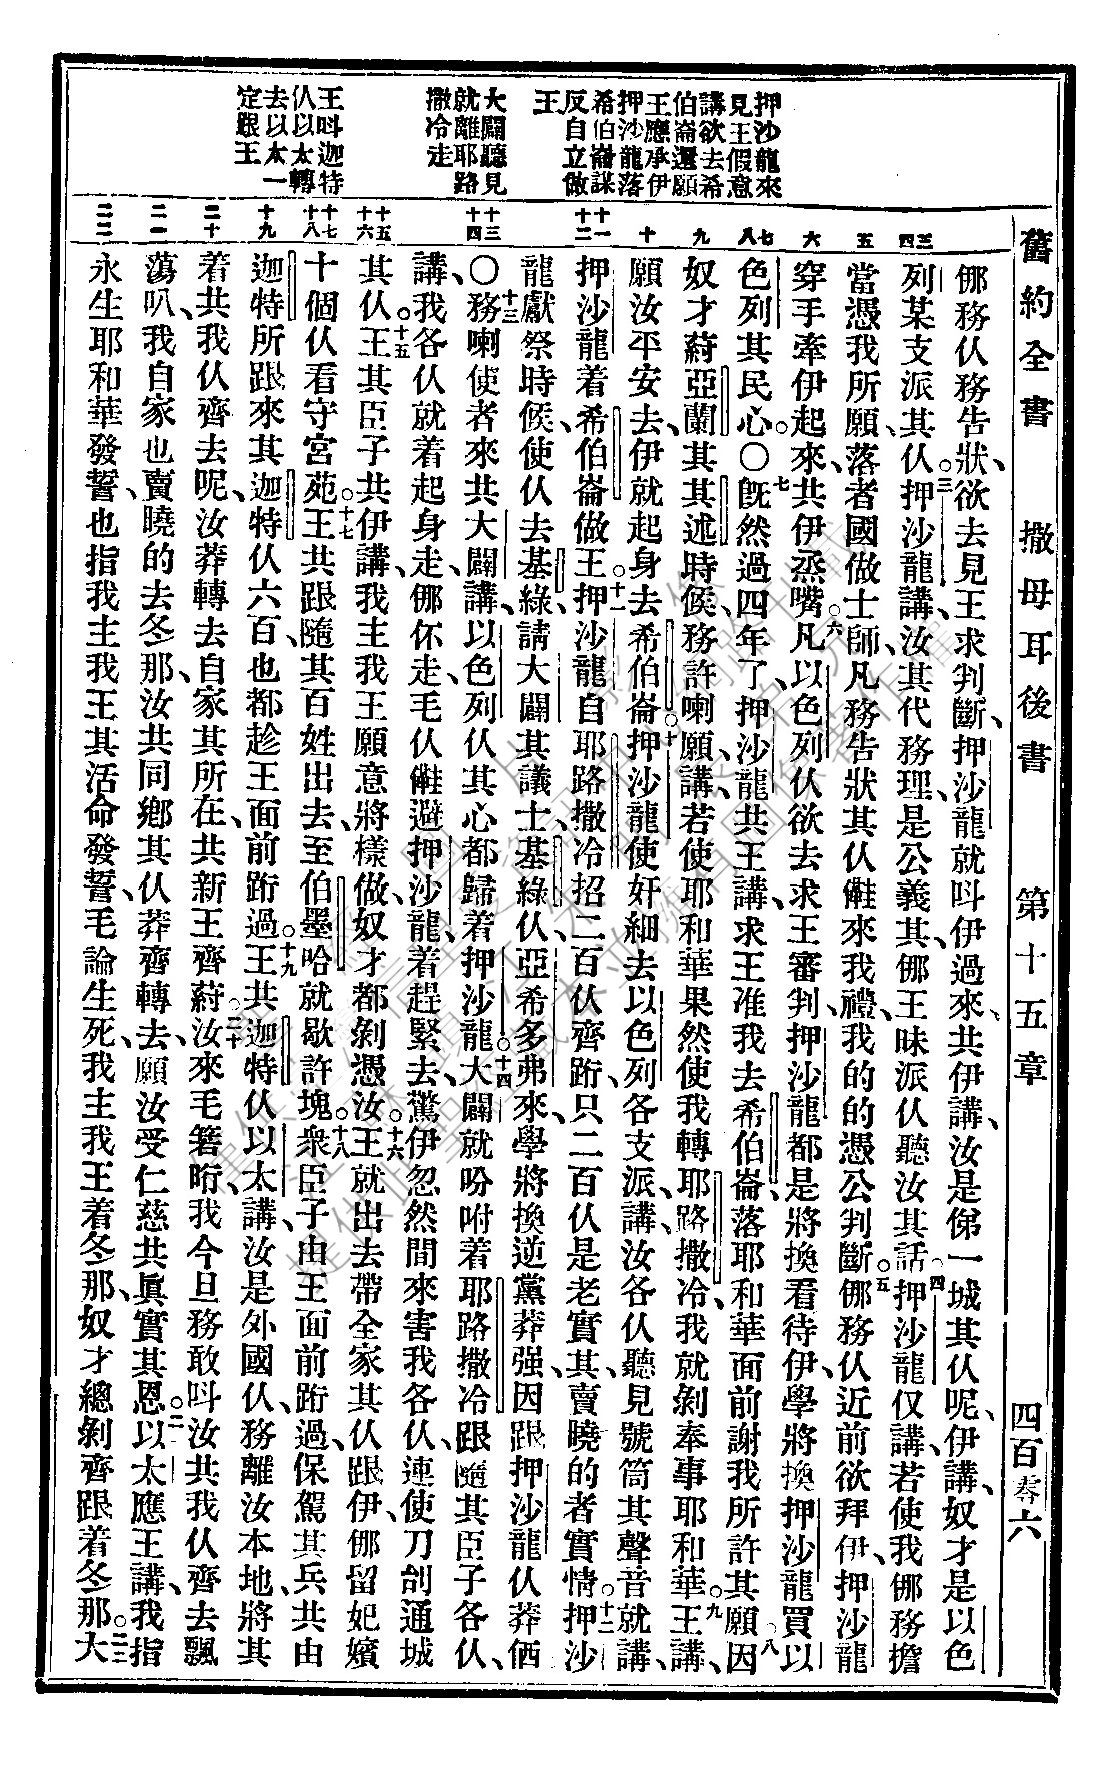 舊約全書 撒母耳後書 第十五章 四百零六
押沙龍來
見王假意
講欲去希
伯崙還願
王應承伊
押沙龍落
希伯崙謀
反自立做
王
大闢聽見
就離耶路
撒冷走
王呌迦特
仈以太轉
去以太一
定跟王
三
四
五
六
七
八
九
十
十一
十二
十三
十四
十五
十六
十七
十八
十九
二十
二一
二二
倻務仈務告狀、欲去見王求判斷、押沙龍就呌伊過來、共伊講、汝是俤一城其仈呢、伊講、奴才是以色
列某支派其仈。三押沙龍講、汝其代務理、是公義其、倻王昧派仈聽汝其話。四押沙龍仅講、若使我倻務擔
當、憑我所願、落者國做士師、凡務告狀其仈、㑆來我禮、我的的憑公判斷。五倻務仈近前欲拜伊、押沙龍
穿手牽伊起來、共伊烝嘴。六凡以色列仈欲去求王審判、押沙龍都是將換看待伊、學將換押沙龍買以
色列其民心。〇七旣然過四年了、押沙龍共王講、求王准我去希伯崙、落耶和華面前謝我所許其願。八因
奴才蔚亞蘭其其述時候、務許喇願、講、若使耶和華果然使我轉耶路撒冷、我就剝奉事耶和華。九王講、
願汝平安去、伊就起身去希伯崙。十押沙龍使奸細去以色列各支派、講、汝各仈、聽見號筒其聲音、就講、
押沙龍着希伯崙做王。十一押沙龍自耶路撒冷招二百仈齊跡、只二百仈是老實其、賣曉的者實情。十二押沙
龍獻祭時候、使仈去基綠、請大闢其議士、基綠仈亞希多弗來、學將換逆黨莽强、因跟押沙龍仈莽価
〇十三務喇使者來共大闢講、以色列仈其心都歸着押沙龍。十四大闢就吩咐着耶路撒冷跟隨其臣子各仈、
講、我各仈就着起身走、倻伓走、毛仈㑆避押沙龍、着趕緊去、驚伊忽然間來害我各仈、連使刀刣通城
其仈。十五王其臣子共伊講、我主我王願意將樣做、奴才都剝憑汝。十六王就出去、帶全家其仈跟伊、倻留妃嬪
十個仈看守宮苑。十七王共跟隨其百姓出去、至伯墨哈就歇許塊。十八衆臣子由王面前跡過、保駕其兵、共由
迦特所跟來其迦特仈六百、也都趁王面前跡過。十九王共迦特仈以太講、汝是外國仈、務離汝本地、將其
着共我仈齊去呢、汝莽轉去自家其所在、共新王齊蔚。二十汝來毛箸晌、我今旦務敢呌汝共我仈齊去飄
蕩叭、我自家也賣曉的去冬那、汝共同鄕其仈莽齊轉去、願汝受仁慈共眞實其恩。二一以太應王講、我指
永生耶和華發誓、也指我主我王其活命發誓、毛論生死、我主我王着冬那、奴才總剝齊跟着冬那。二二大